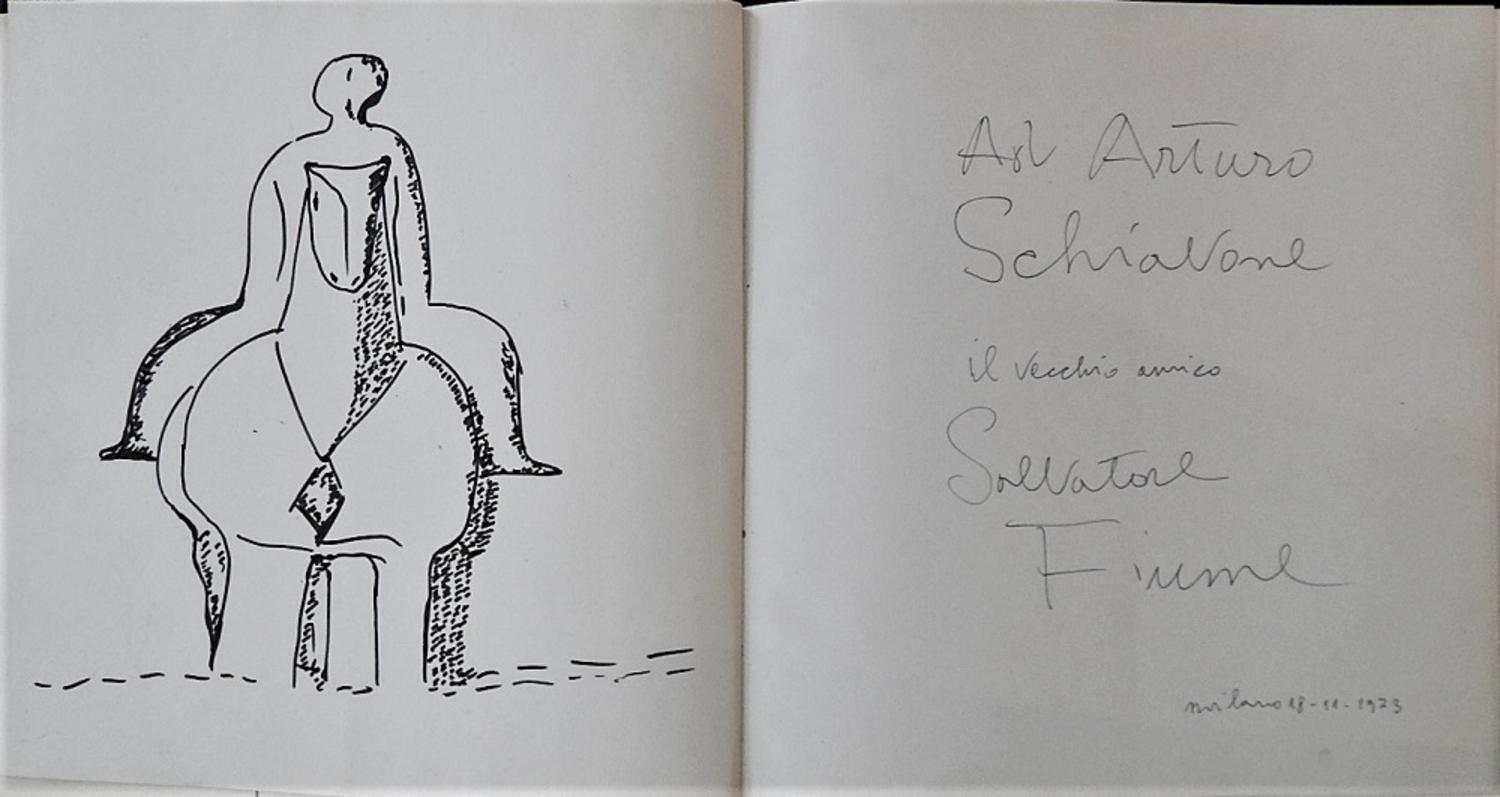 Ad Arturo
Schiavone
il vecchio amico
Salvatore
Fiume
milano 18-11-1973